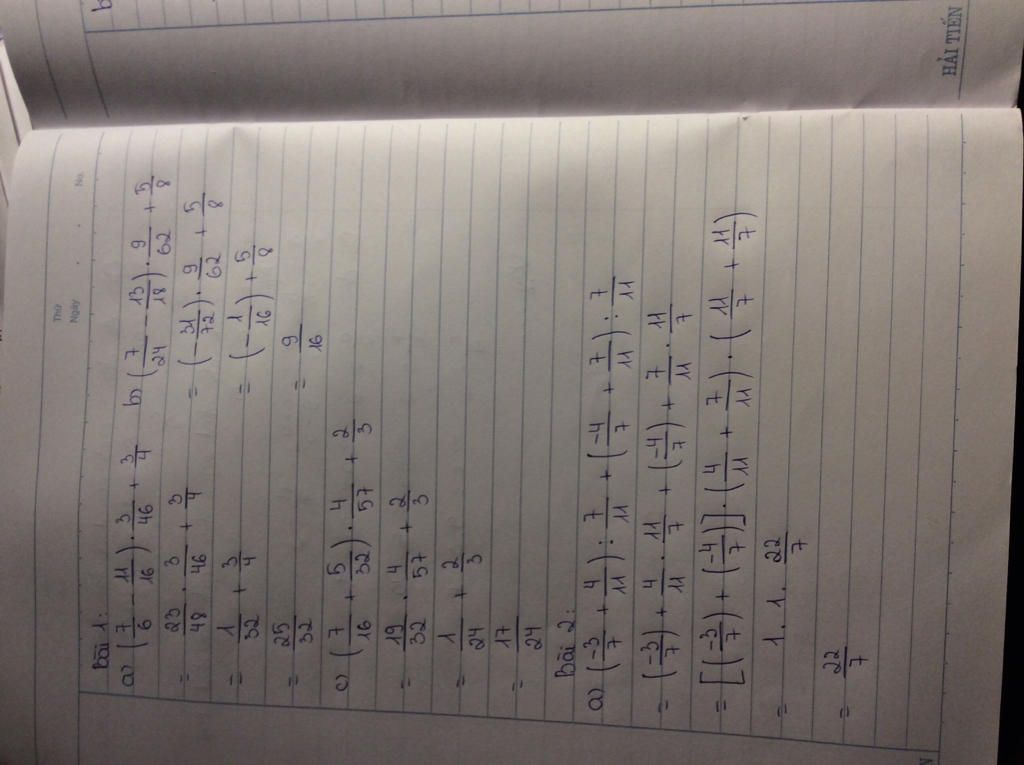 HẢI TIẾN
Thứ
Ngày . . No.
Bài 1:
a) (7/6 - 11/16) . 3/46 + 3/4
= 23/48 . 3/46 + 3/4
= 1/32 + 3/4
= 25/32
b) (7/24 - 13/18) . 9/62 + 5/8
= (-31/72) . 9/62 + 5/8
= (-1/16) + 5/8
= 9/16
c) (7/16 + 5/32) . 4/57 + 2/3
= 19/32 . 4/57 + 2/3
= 1/24 + 2/3
= 17/24
Bài 2:
a) (-3/7 + 4/11) : 7/11 + (-4/7 + 7/11) : 7/11
= (-3/7) + 4/11 . 11/7 + (-4/7) + 7/11 . 11/7
= [(-3/7) + (-4/7)] . (4/11 + 7/11) . (11/7 + 11/7)
= 1 . 1 . 22/7
= 22/7